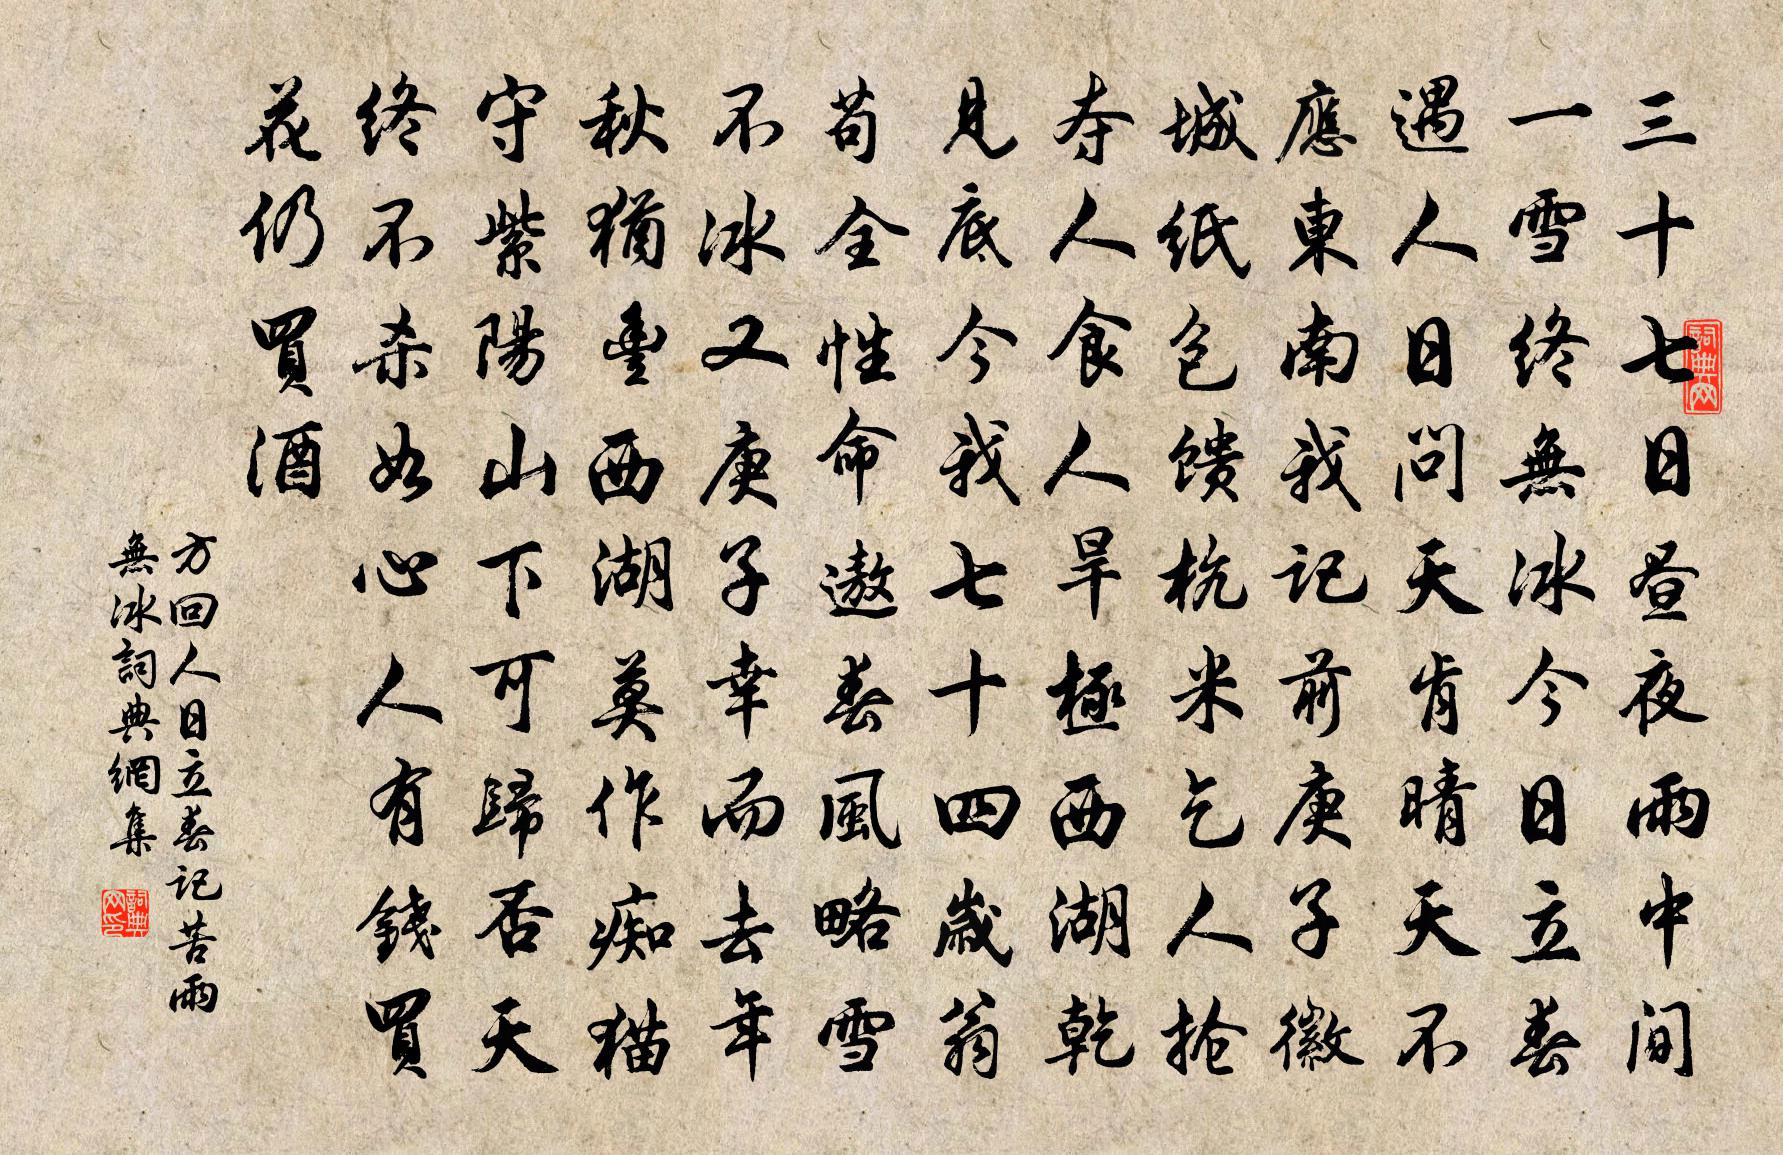 三十七日昼夜雨中間
一雪終無冰今日立春
遇人日問天肯晴天不
應東南我記前庚子徽
城紙包馈杭米乞人搶
夺人食人旱極西湖乾
見底今我七十四歲翁
苟全性命遨春風略雪
不冰又庚子幸而去年
秋猶豊西湖莫作痴猫
守紫陽山下可歸否天
終不杀如心人有錢買
花仍買酒
方回人日立春記苦雨
無冰詞典網集
詞典网
詞典网印